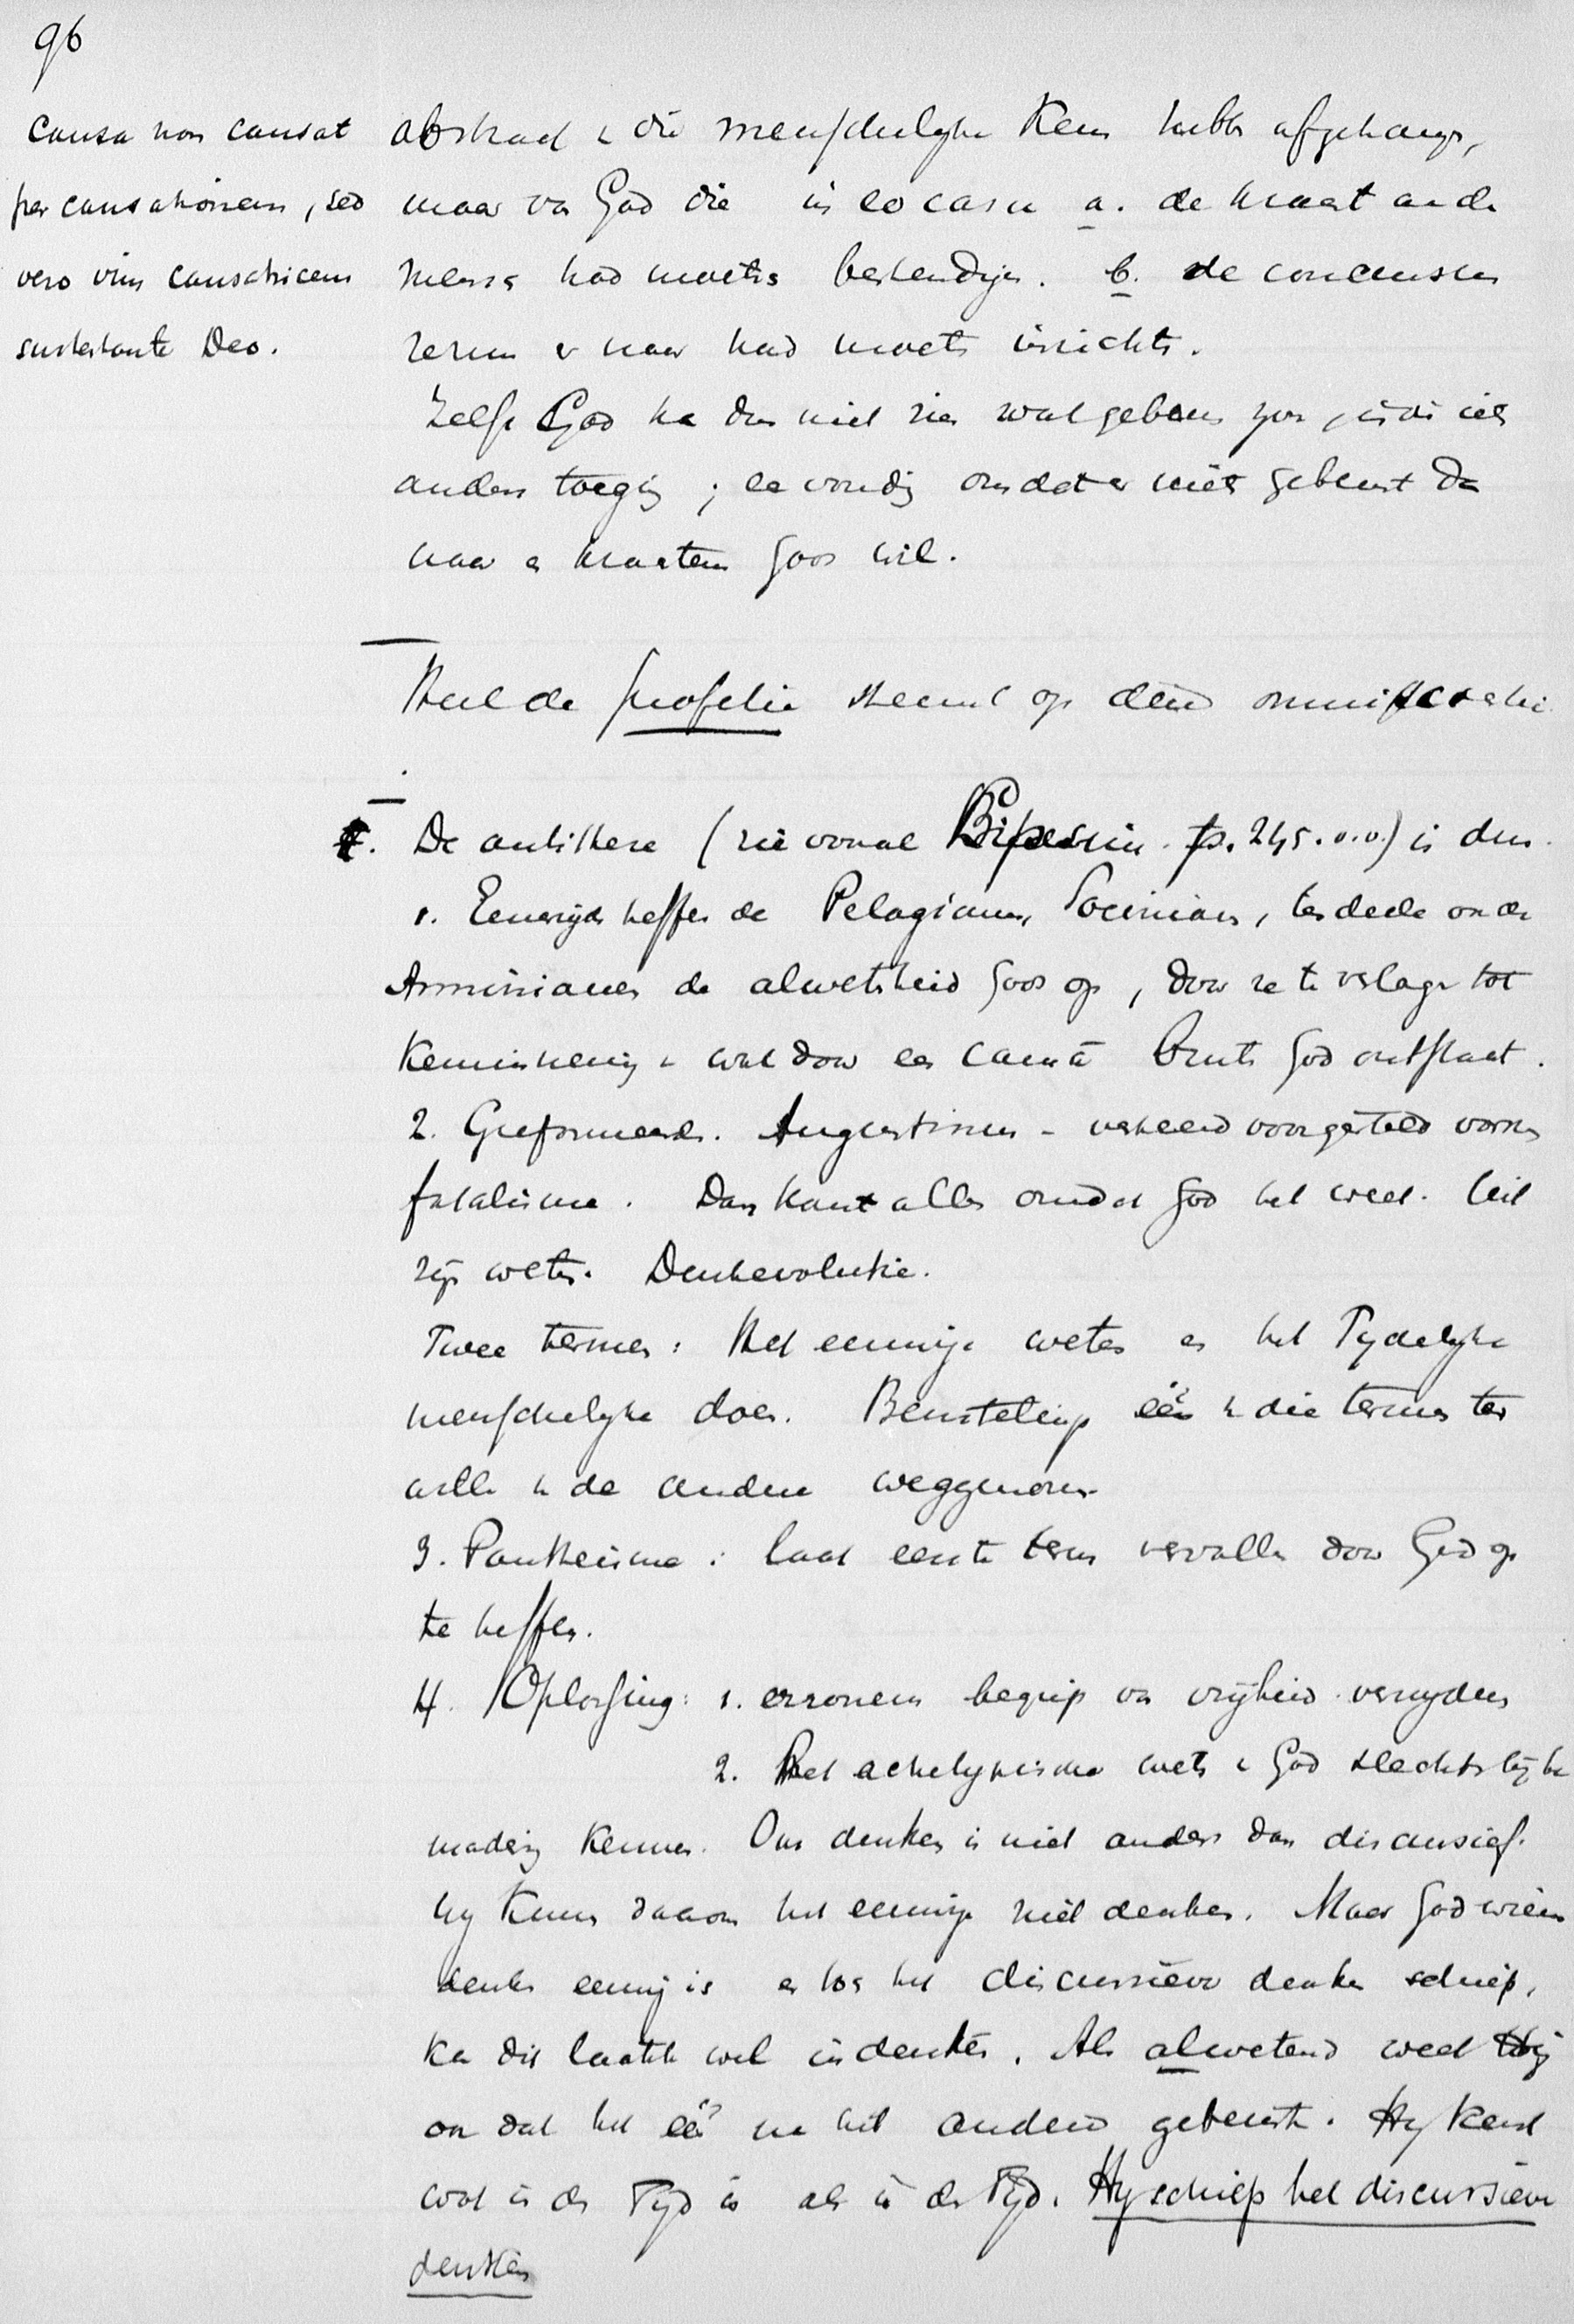 96
Causa non causat
per causationem, sed
vero vim causatricem
sustentante Deo.
abstract v die menschelyke Keus hebb afgehangen,
maar van God die in eo casu a. de kraat aan de
mensch had moeten bestendigen. b. de concensus
rerum er naar had moeten inrichten.
Zelfs God ka dus niet zien wat gebeurd zou, indi iets
anders toeging; eenvoudig omdat er niets gebeurt dan
naar en krachtens Gods wil.
Heel de profetie steunt op deze omni
. De antithese (zie vooral p. 245. v.v.) is dus.
1. Eenerzijds heffen de Pelagianen, Socinian, ten deele ook de
Arminianen de alwetenheid Gods op, door ze te verlagen tot
Kennisneming v wat door een causa buiten God ontstaat.
2. Gereformeerd. Augustinus - verkeerd voorgesteld worden
fatalisme. Dan komt alles omdat God het weet. Uit
zijn weten. Denkevolutie.
Twee termen: Het eeuwige weten en het Tydelyke
menschelyke doen. Beurtelings één v die termen ter
wille v de andere weggenomen
3. Pantheisme: laat eerste term vervallen door God op
te heffen.
4. Oplossing: 1. erroneus begrip van vrijheid vermyden
2. Het achetypische weten v God slechts bij be
nadering kennen. Ons denken is niet anders dan discursief.
Wy Kunnen daarom het eeuwige niet denken. Maar God wiens
denken eeuwig is en toch het discursieve denken schiep,
kan dit laatste wel indenken. Als alwetend weet Hij
ook dat het één na het andere gebeurt. Hy Kent
wat in de Tyd is als in de Tyd. Hy schiep het discursieve
denken